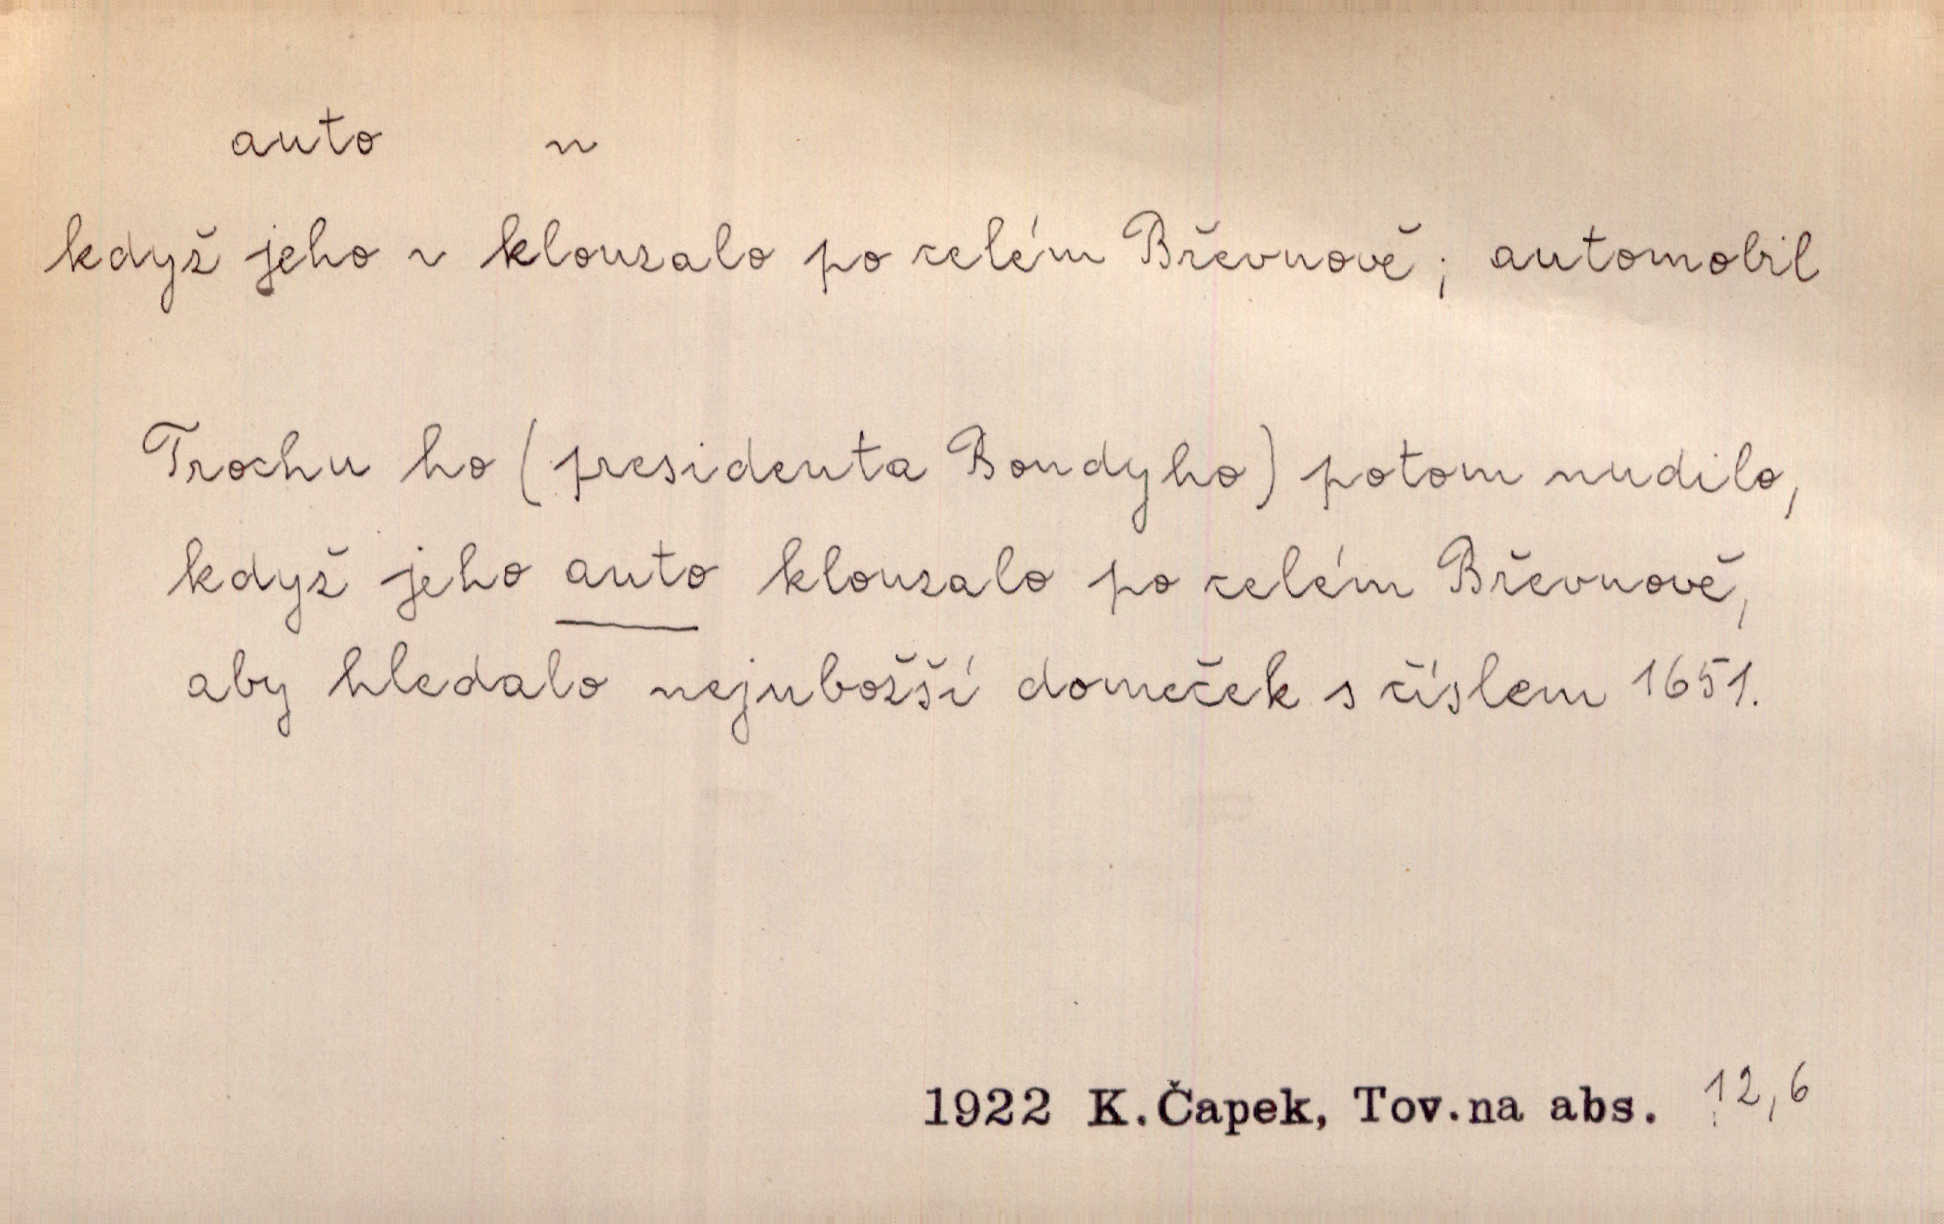 auto n
když jeho ~ klouzalo po celém Břevnově; automobil
Trochu ho (presidenta Bondyho) potom nudilo,
když jeho auto klouzalo po celém Břevnově,
aby hledalo nejubožší domeček s číslem 1651.
1922 K. Čapek, Tov. na abs. 12,6